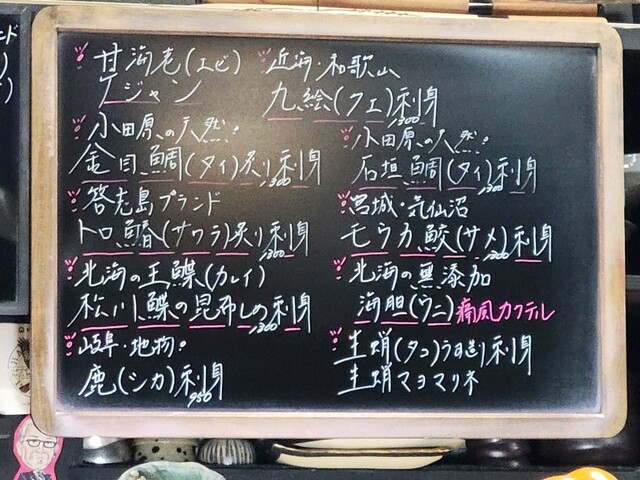 甘海老(エビ)
ケジャン
小田原の天然!
金目鯛(タイ)炙り刺身
1,300
答志島ブランド
トロ鰆(サワラ)炙り刺身
1,300
北海の王鰈(カレイ)
松川鰈の昆布しめ刺身
1,300
岐阜・地物!
鹿(シカ)刺身
950
近海・和歌山
九絵(クエ)刺身
1,300
小田原の天然!
石垣鯛(タイ)刺身
1,300
宮城・気仙沼
モウカ鮫(サメ)刺身
1,200
北海の無添加
海胆(ウニ)痛風カクテル
生蛸(タコ)うす造り刺身
生蛸マヨマリネ